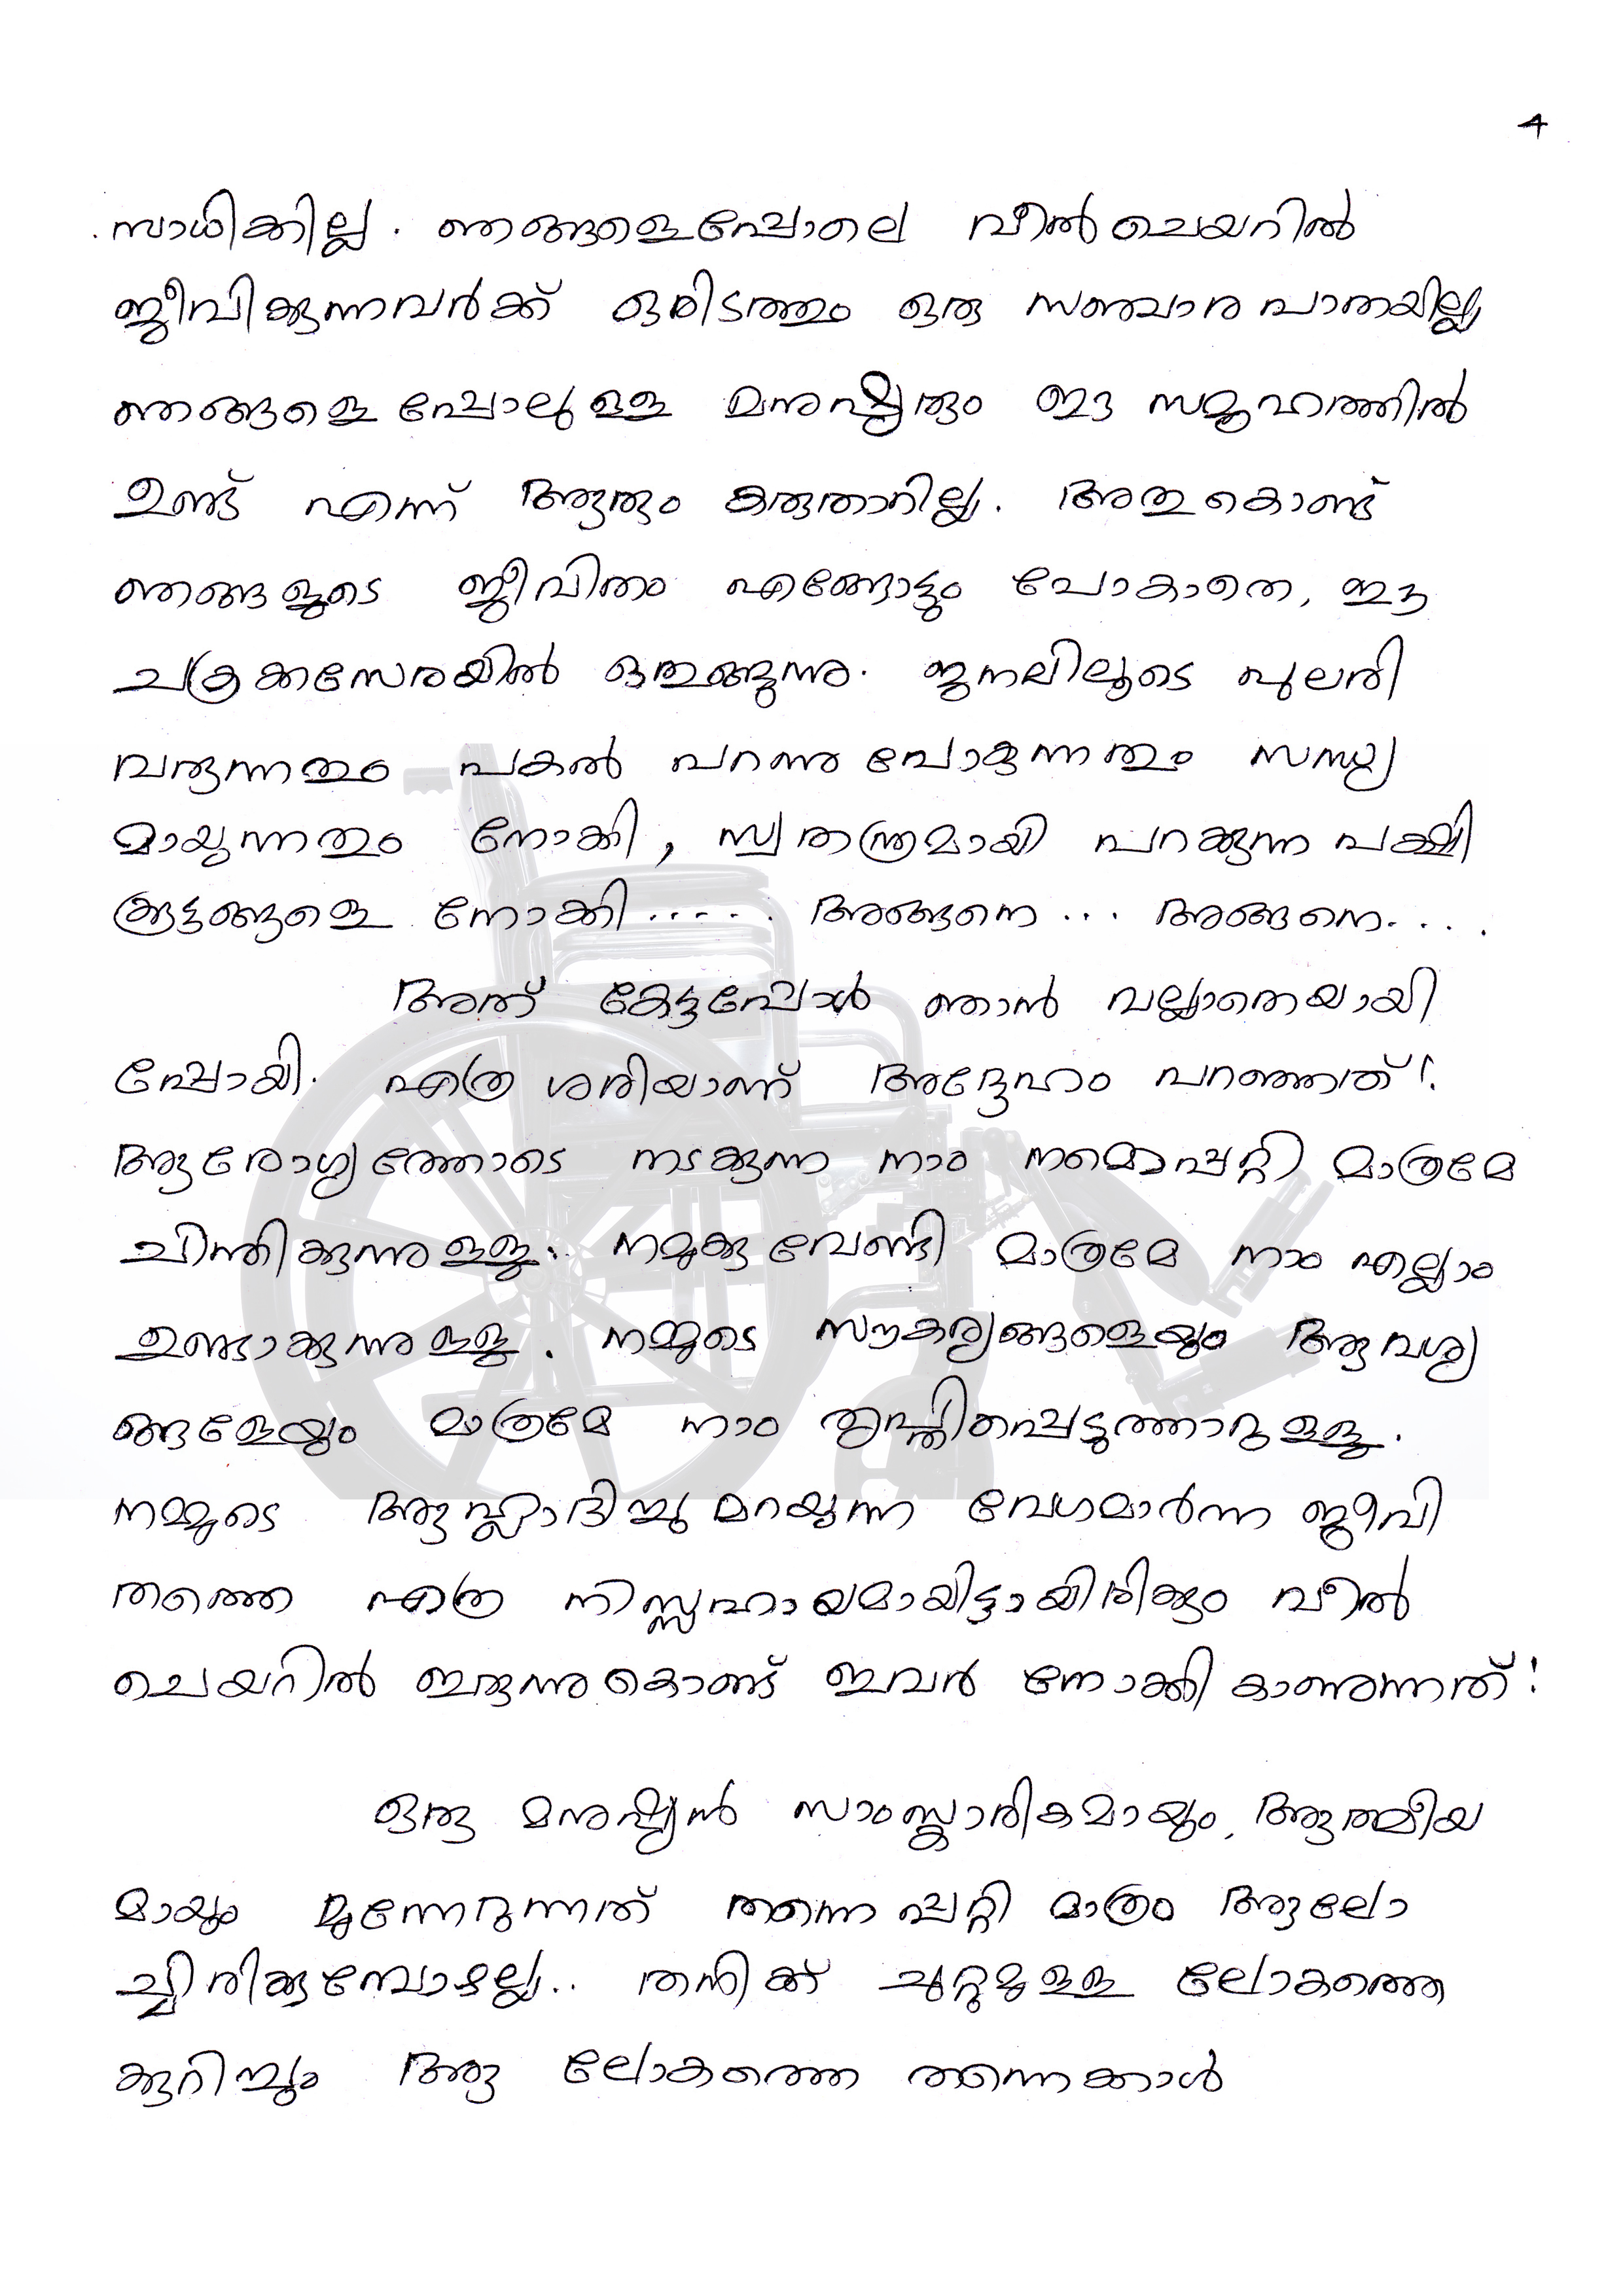 4
സാധിക്കില്ല. ഞങ്ങളെപ്പോലെ വീൽ ചെയറിൽ
ജീവിക്കുന്നവർക്ക് ഒരിടത്തും ഒരു സഞ്ചാര പാതയില്ല
ഞങ്ങളെ പ്പോലുള്ള മനുഷ്യരും ഈ സമൂഹത്തിൽ
ഉണ്ട് എന്ന് ആരും കരുതാറില്ല. അതു കൊണ്ട്
ഞങ്ങളുടെ ജീവിതം എങ്ങോട്ടും പോകാതെ, ഈ
ചക്രക്കസേരയിൽ ഒതുങ്ങുന്നു. ജനലിലൂടെ പുലരി
വരുന്നതും പകൽ പറന്നു പോകുന്നതും സന്ധ്യ
മായുന്നതും നോക്കി, സ്വതന്ത്രമായി പറക്കുന്ന പക്ഷി
ക്കൂട്ടങ്ങളെ നോക്കി..... അങ്ങനെ... അങ്ങനെ....
അത് കേട്ടപ്പോൾ ഞാൻ വല്ലാതെയായി
പ്പോയി. എത്ര ശരിയാണ് അദ്ദേഹം പറഞ്ഞത്!.
ആരോഗ്യത്തോടെ നടക്കുന്ന നാം നമ്മെപ്പറ്റി മാത്രമേ
ചിന്തിക്കുന്നുള്ളൂ.. നമുക്കു വേണ്ടി മാത്രമേ നാം എല്ലാം
ഉണ്ടാക്കുന്നുള്ളൂ. നമ്മുടെ സൗകര്യങ്ങളെയും ആവശ്യ
ങ്ങളേയും മാത്രമേ നാം തൃപ്തിപ്പെടുത്താറുള്ളൂ.
നമ്മുടെ ആഹ്ലാദിച്ചു മറയുന്ന വേഗമാർന്ന ജീവി
തത്തെ എത്ര നിസ്സഹായമായിട്ടായിരിക്കും വീൽ
ചെയറിൽ ഇരുന്നു കൊണ്ട് ഇവർ നോക്കി കാണുന്നത്!
ഒരു മനുഷ്യൻ സാംസ്കാരികമായും, ആത്മീയ
മായും മുന്നേറുന്നത് തന്നെ പ്പറ്റി മാത്രം ആലോ
ച്ചിരിക്കുമ്പോഴല്ല.. തനിക്ക് ചുറ്റുമുള്ള ലോകത്തെ
ക്കുറിച്ചും ആ ലോകത്തെ തന്നെക്കാൾ